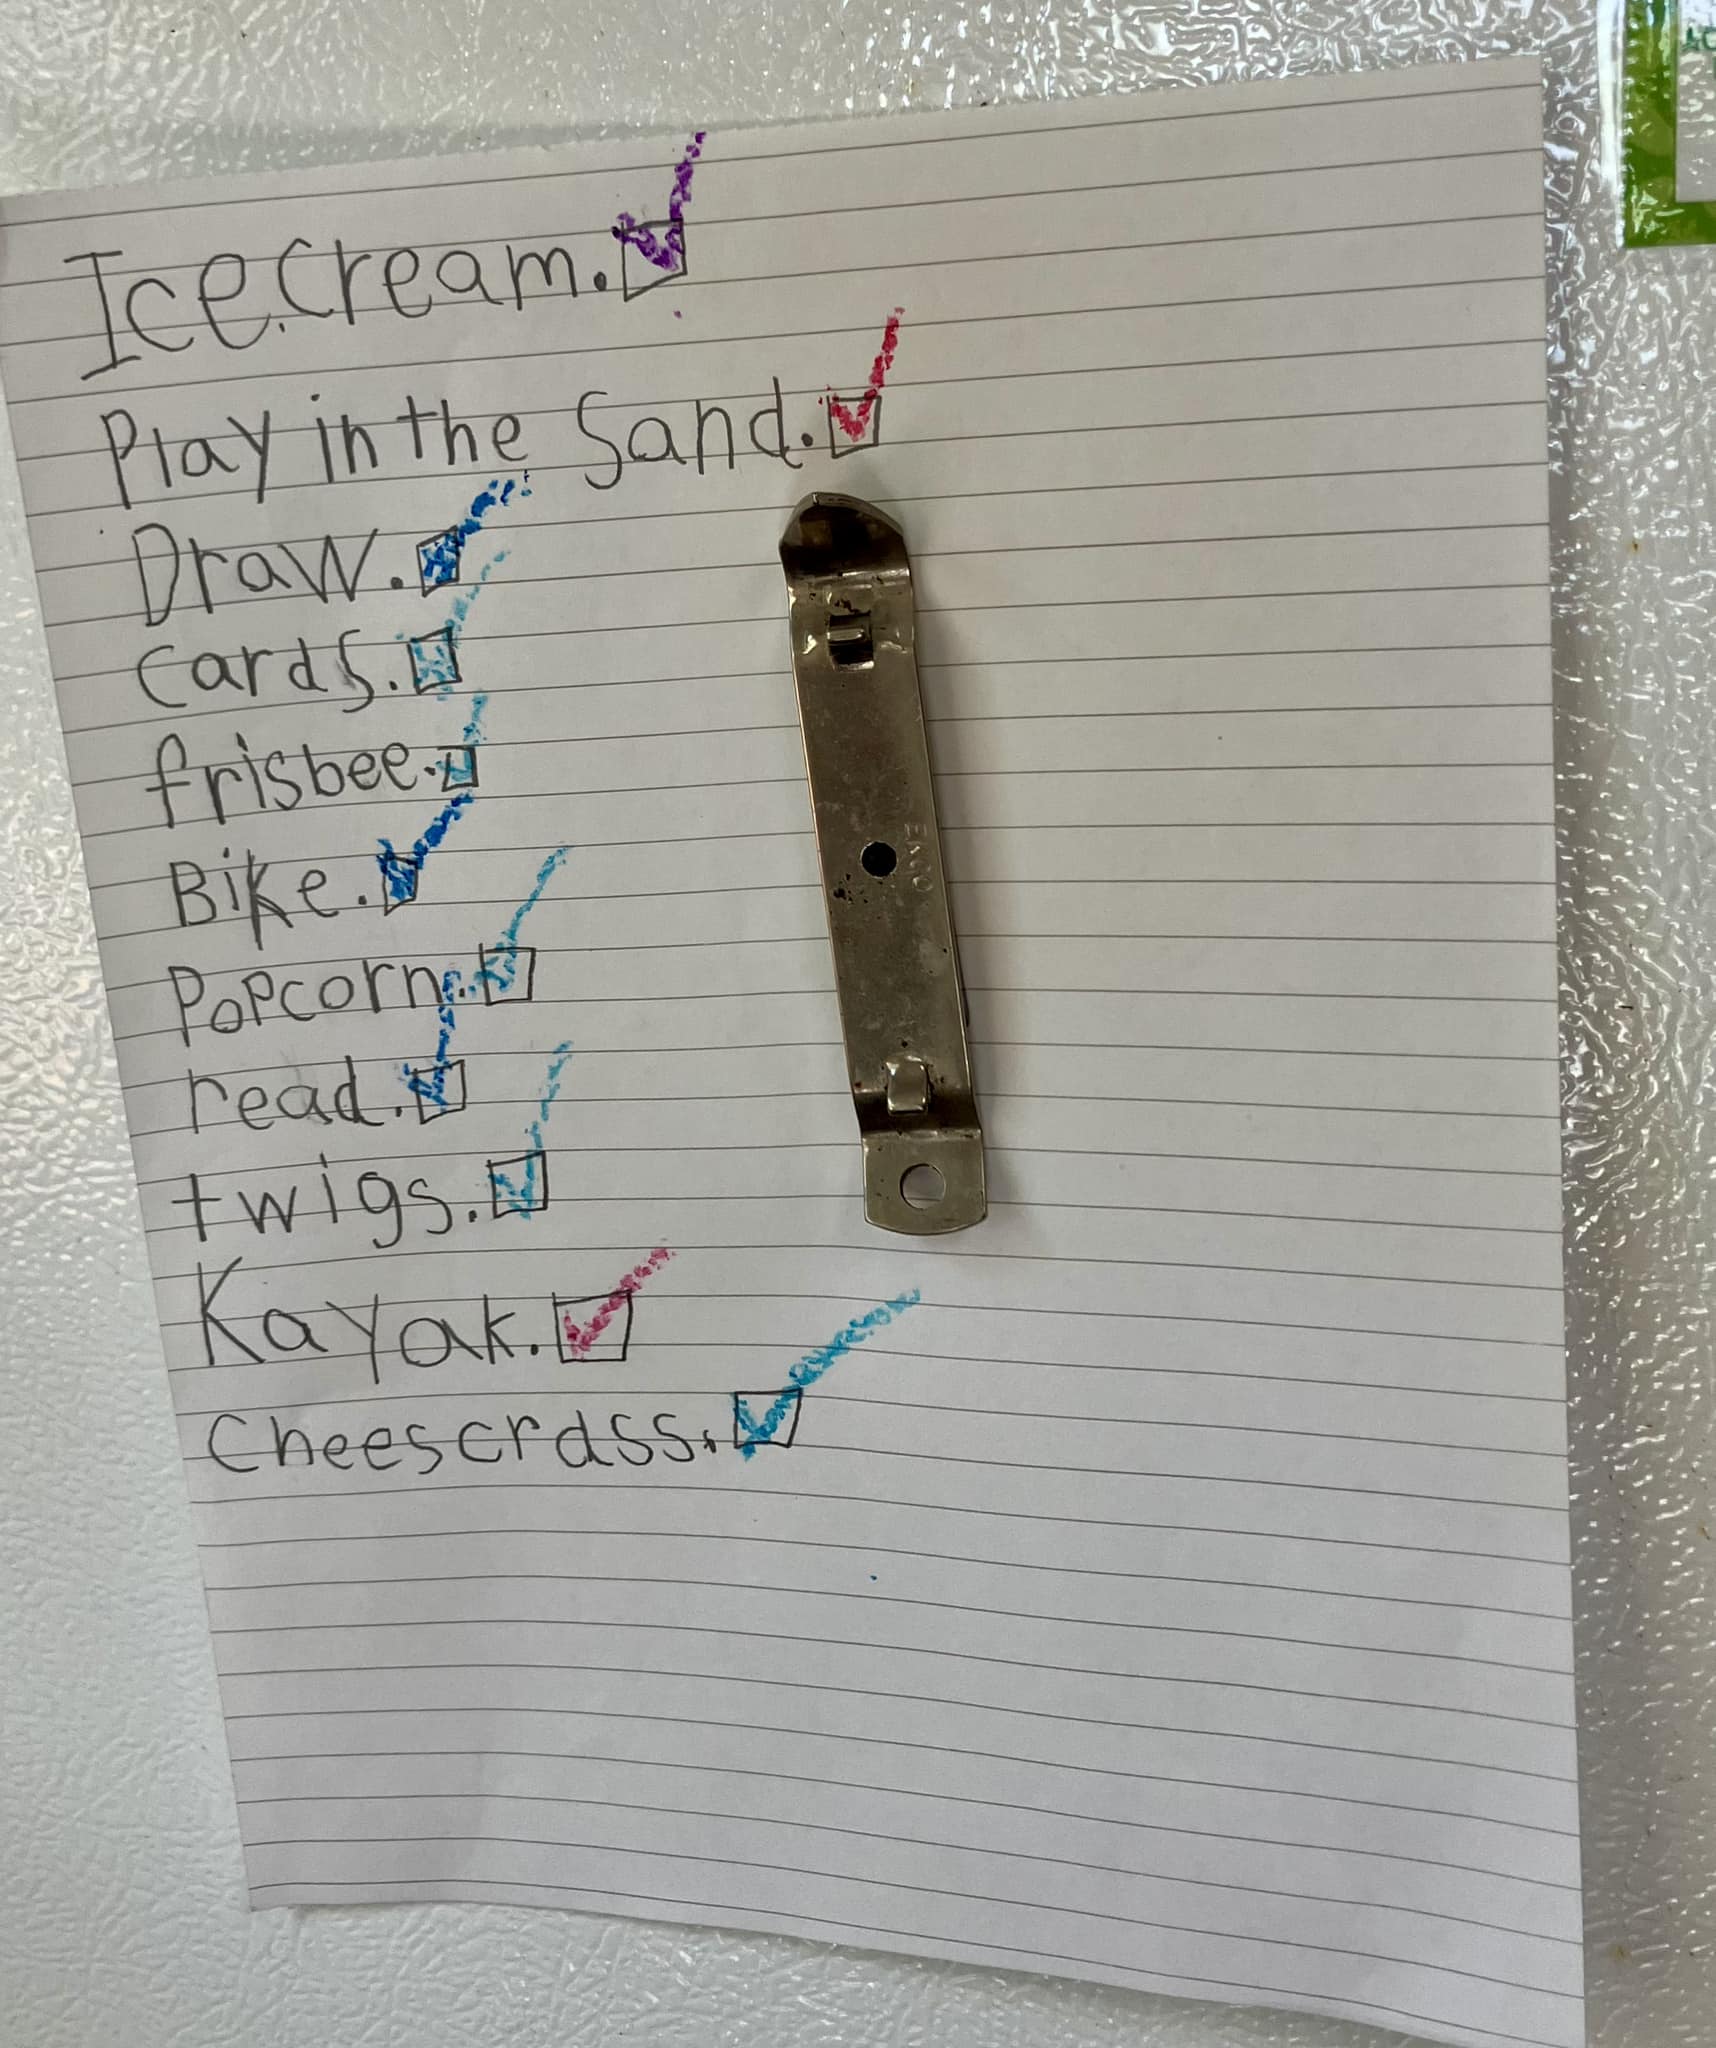 Ice.cream. ☑
Play in the Sand. ☑
Draw. ☑
cards. ☑
frisbee. ☑
Bike. ☑
Popcorn. ☑
read. ☑
twigs. ☑
Kayak. ☑
Cheescrass. ☑
EKCO